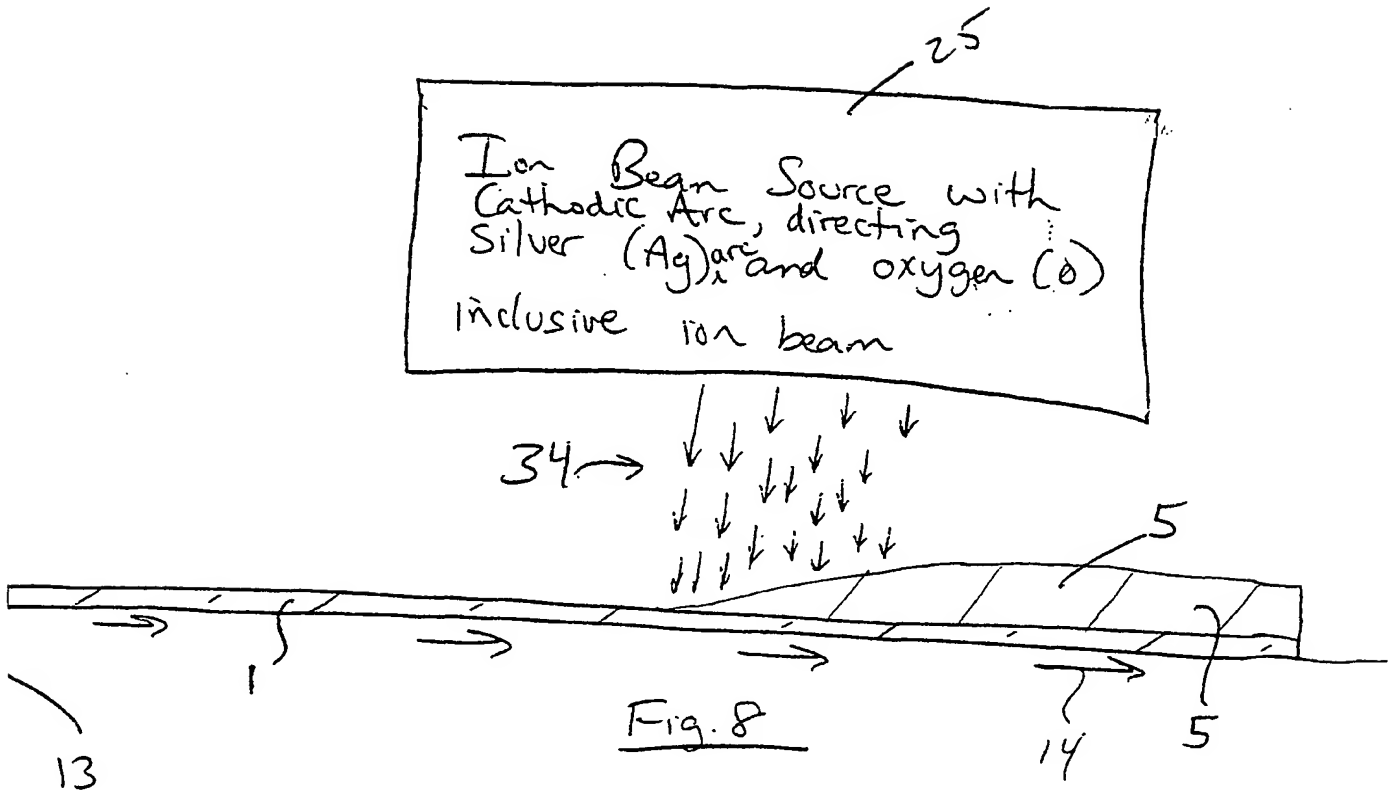 25
Ion Beam Source with
Cathodic Arc, directing
Silver (Ag) arc and oxygen (O)
inclusive ion beam
34
5
1
Fig. 8
14
5
13